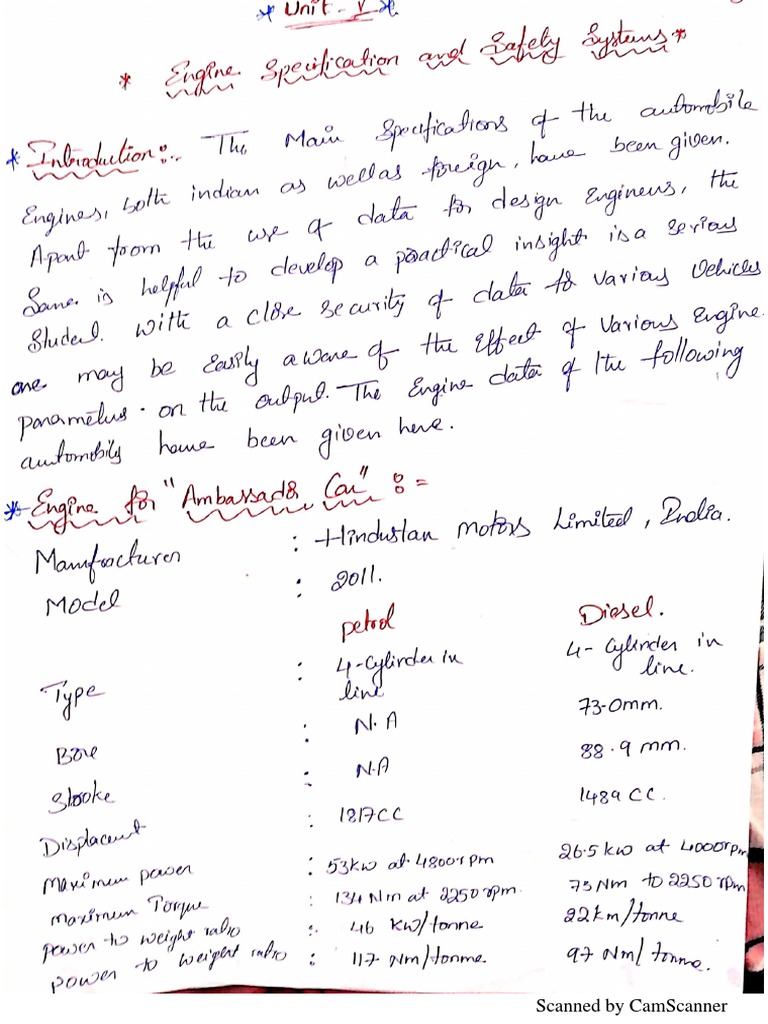 * Unit - V *
* Engine Specification and Safety Systems *
* Introduction :- The Main Specifications of the automobile
Engines, both indian as wellas foreign, have been given.
Apart from the use of data for design Engineers, the
Same is helpful to develop a practical insight is a serious
Student. With a close security of data to various Vehicles
one may be easily aware of the Effect of Various Engine
parameters. on the output. The Engine data of the following
automobily have been given here.
* Engine for "Ambassador Car" :=
Manufacturer : Hindustan Motors Limited, India.
Model : 2011.
petrol Diesel.
Type : 4-Cylinder in line 4- Cylinder in line.
Bore : N.A 73.0mm.
Stroke : N.A 88.9 mm.
Displacent : 1817CC 1489 CC.
Maximum power : 53kw at 4800rpm 26.5 kw at 4000rpm
Maximum Torque : 134 Nm at 2250 rpm. 73 Nm to 2250 rpm
power to weight ratio : 46 kw/tonne 22km/tonne
power to weight ratio : 117 Nm/tonne. 97 Nm/tonne.
Scanned by CamScanner